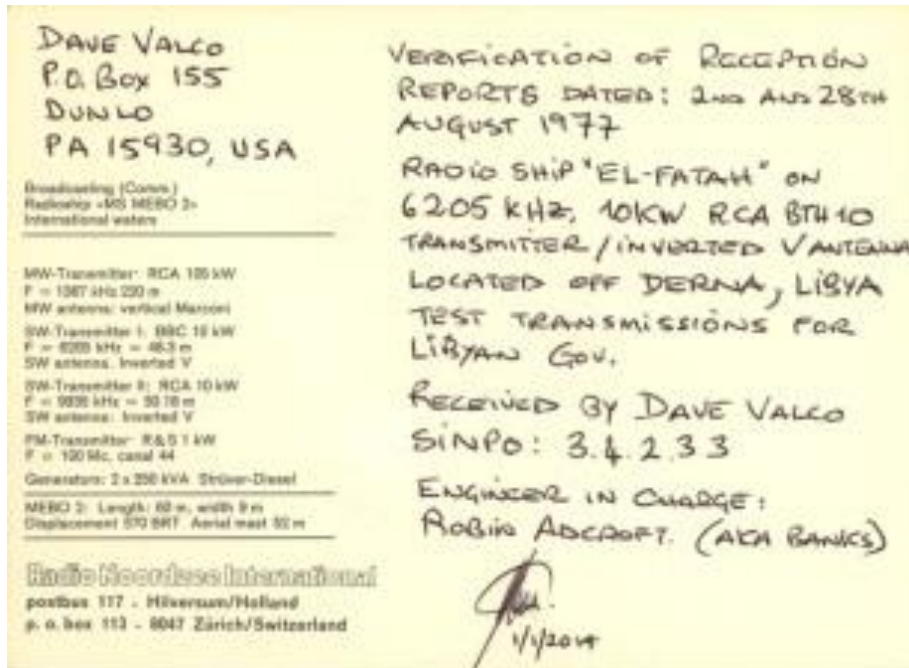 DAVE VALCO
P.O. BOX 155
DUNLO
PA 15930, USA
Broadcasting (Comm.)
Radioship «MS MEBO 2»
International waters
MW-Transmitter: RCA 105 kW
F = 1367 kHz 220 m
MW antenna: vertical Marconi
SW-Transmitter I: BBC 10 kW
F = 6205 kHz = 48.3 m
SW antenna: Inverted V
SW-Transmitter II: RCA 10 kW
F = 9935 kHz = 30.18 m
SW antenna: Inverted V
FM-Transmitter: R&S 1 kW
F = 100 Mc. canal 44
Generators: 2 x 250 kVA Strüver-Diesel
MEBO 2: Length: 60 m, width 9 m
Displacement 570 BRT Aerial mast 52 m
Radio Noordzee International
postbus 117 - Hilversum/Holland
p. o. box 113 - 8047 Zürich/Switzerland
VERIFICATION OF RECEPTION
REPORTS DATED: 2ND AND 28TH
AUGUST 1977
RADIO SHIP "EL-FATAH" ON
6205 KHZ, 10KW RCA BTH10
TRANSMITTER/INVERTED V ANTENNA
LOCATED OFF DERNA, LIBYA
TEST TRANSMISSIONS FOR
LIBYAN GOV.
RECEIVED BY DAVE VALCO
SINPO: 3.4.2.3 3
ENGINEER IN CHARGE:
ROBIN ADCROFT. (AKA BANKS)
1/1/2014